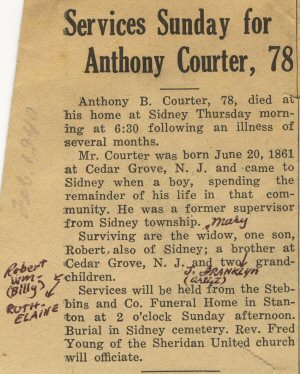 Services Sunday for
Anthony Courter, 78
Anthony B. Courter, 78, died at
his home at Sidney Thursday morn-
ing at 6:30 following an illness of
several months.
Mr. Courter was born June 20, 1861
at Cedar Grove, N. J. and came to
Sidney when a boy, spending the
remainder of his life in that com-
munity. He was a former supervisor
from Sidney township.
Mary
Surviving are the widow, one son,
Robert, also of Sidney; a brother at
Cedar Grove, N. J. and two grand-
children.
J. FRANKLYN
Robert
Wm-
(Billy)
RUTH-
ELAINE
Services will be held from the Steb-
bins and Co. Funeral Home in Stan-
ton at 2 o'clock Sunday afternoon.
Burial in Sidney cemetery. Rev. Fred
Young of the Sheridan United church
will officiate.
Feb. 1, 1940